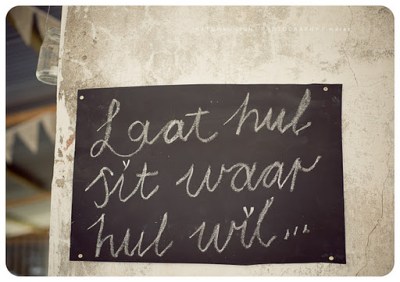 Laat hul
sit waar
hul wil...